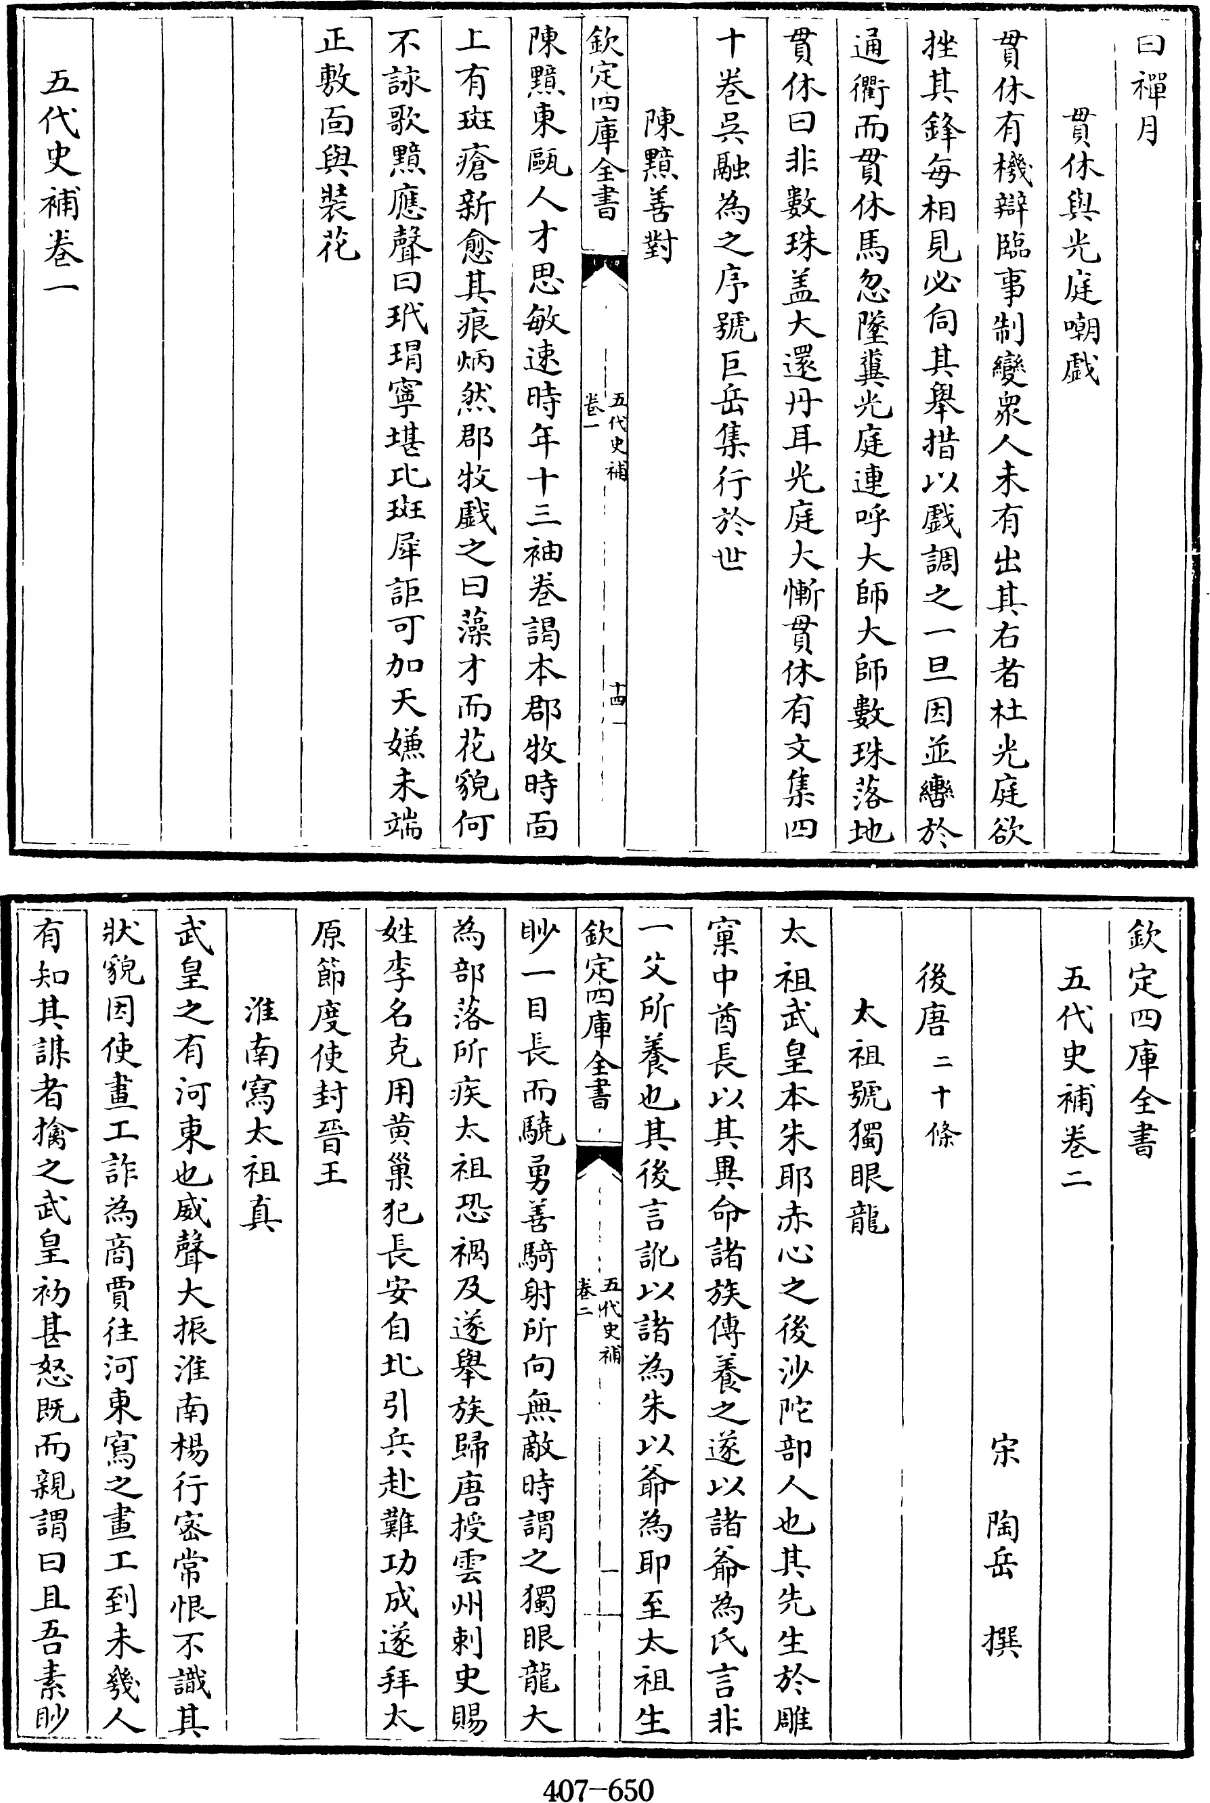 曰禪月
貫休與光庭嘲戲
貫休有機辯臨事制變衆人未有出其右者杜光庭欲
挫其鋒每相見必伺其舉措以戲調之一旦因並轡於
通衢而貫休馬忽墜糞光庭連呼大師大師數珠落地
貫休曰非數珠盖大還丹耳光庭大慚貫休有文集四
十卷吳融為之序號巨岳集行於世
陳黯善對
欽定四庫全書
五代史補
卷一
十四
陳黯東甌人才思敏速時年十三袖卷謁本郡牧時面
上有斑瘡新愈其痕炳然郡牧戲之曰藻才而花貌何
不詠歌黯應聲曰玳瑁寧堪比斑犀詎可加天嫌未端
正敷面與裝花
五代史補卷一
欽定四庫全書
五代史補卷二
宋 陶岳 撰
後唐二十條
太祖號獨眼龍
太祖武皇本朱耶赤心之後沙陀部人也其先生於雕
窠中酋長以其異命諸族傳養之遂以諸爺為氏言非
一父所養也其後言訛以諸為朱以爺為耶至太祖生
欽定四庫全書
五代史補
卷二
一
眇一目長而驍勇善騎射所向無敵時謂之獨眼龍大
為部落所疾太祖恐禍及遂舉族歸唐授雲州刺史賜
姓李名克用黄巢犯長安自北引兵赴難功成遂拜太
原節度使封晉王
淮南寫太祖真
武皇之有河東也威聲大振淮南楊行密常恨不識其
狀貌因使畫工詐為商賈往河東寫之畫工到未幾人
有知其謀者擒之武皇初甚怒既而親謂曰且吾素眇
407-650